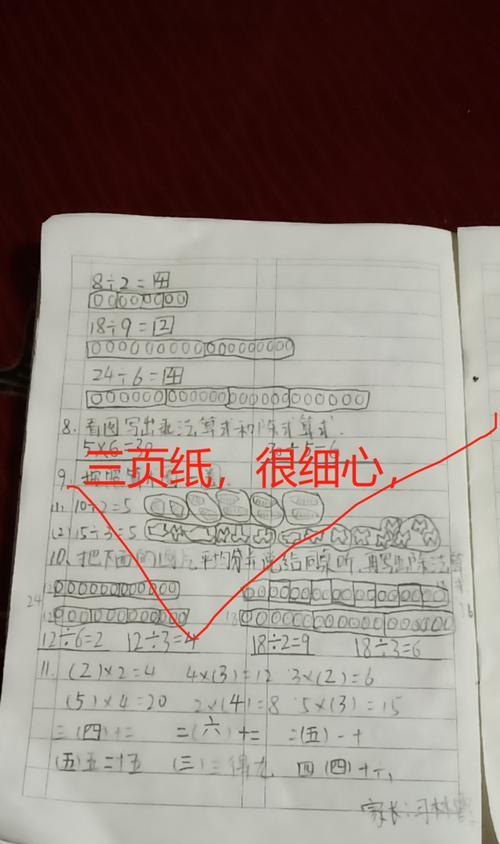 8÷2=4
18÷9=2
24÷6=4
8.看图写出乘法算式和除法算式.
5×6=30
三页纸，很细心，
9.
(1) 10÷2=5
(2) 15÷3=5
10.把下面的 平均分 说给同桌听，再写出除法算
24
18
12÷6=2 12÷3=4 18÷2=9 18÷3=6
11. (2)×2=4 4×(3)=12 3×(2)=6
(5)×4=20 2×(4)=8 5×(3)=15
三(四)十二 二(六)十二 二(五)一十
(五)五二十五 (三)三得九 四(四)十六
家长：